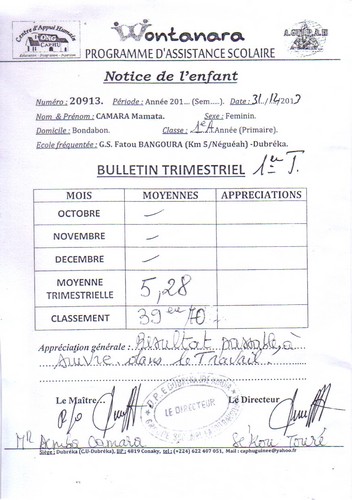 Centre d'Appui Humain
ONG
CAPHU
Wontanara
PROGRAMME D'ASSISTANCE SCOLAIRE
Notice de l'enfant
Numéro : 20913. Période : Année 201... (Sem.....). Date : 31../12/2017
Nom & Prénom : CAMARA Mamata. Sexe : Feminin.
Domicile : Bondabon. Classe : 1èA Année (Primaire).
Ecole fréquentée : G.S. Fatou BANGOURA (Km 5/Néguéah) -Dubréka.
BULLETIN TRIMESTRIEL 1er T.
MOIS MOYENNES APPRECIATIONS
OCTOBRE —
NOVEMBRE —
DECEMBRE —
MOYENNE TRIMESTRIELLE 5,28
CLASSEMENT 39eu 70
Appréciation générale : Résultat passable, à
suivre dans le Travail.
Le Maître... Le Directeur
P/o
LE DIRECTEUR
Mr Camara Sékou Touré
Siège : Dubréka (CU-Dubréka), BP : 4819 Conaky, tel : (+224) 622 407 051, Mail : caphuguinee@yahoo.fr